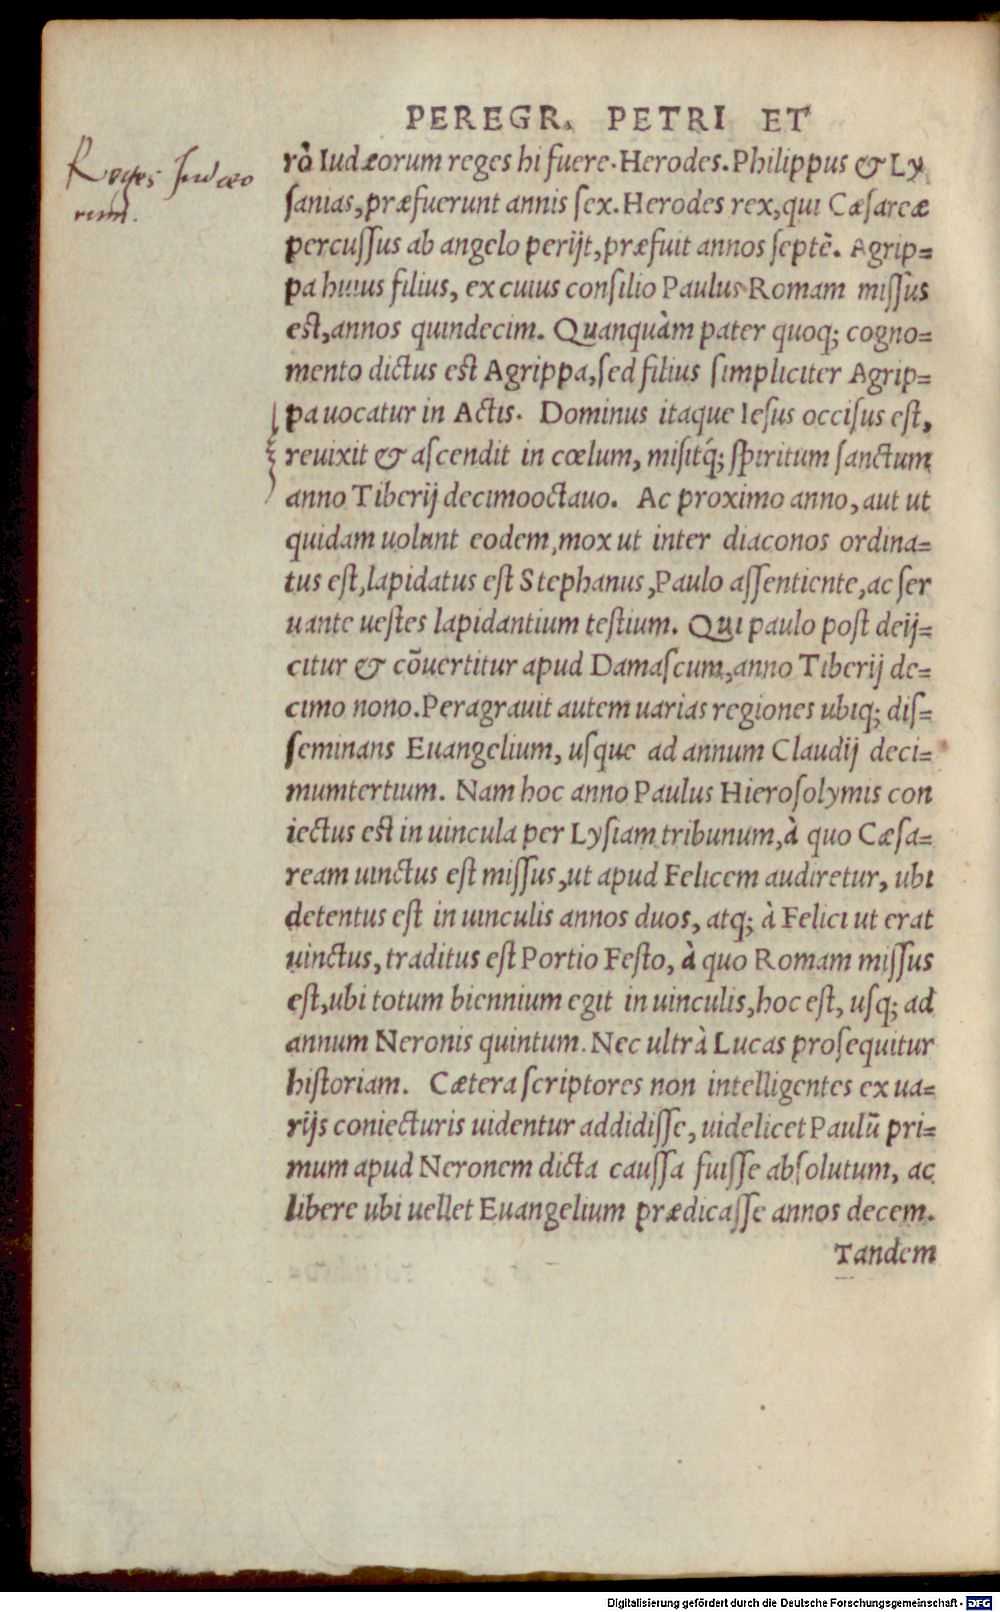 PEREGR. PETRI ET
Reges Iudæo
rum.
rò Iudæorum reges hi fuere. Herodes. Philippus & Ly
sanias, præfuerunt annis sex. Herodes rex, qui Cæsareæ
percussus ab angelo perijt, præfuit annos septē. Agrip=
pa huius filius, ex cuius consilio Paulus Romam missus
est, annos quindecim. Quanquàm pater quoq; cogno=
mento dictus est Agrippa, sed filius simpliciter Agrip=
pa uocatur in Actis. Dominus itaque Iesus occisus est,
reuixit & ascendit in cœlum, misitq́; spiritum sanctum
anno Tiberij decimooctauo. Ac proximo anno, aut ut
quidam uolunt eodem, mox ut inter diaconos ordina=
tus est, lapidatus est Stephanus, Paulo assentiente, ac ser
uante uestes lapidantium testium. Qui paulo post deij=
citur & cōuertitur apud Damascum, anno Tiberij de=
cimo nono. Peragrauit autem uarias regiones ubiq; dis=
seminans Euangelium, usque ad annum Claudij deci=
mumtertium. Nam hoc anno Paulus Hierosolymis con
iectus est in uincula per Lysiam tribunum, à quo Cæsa=
ream uinctus est missus, ut apud Felicem audiretur, ubi
detentus est in uinculis annos duos, atq; à Felici ut erat
uinctus, traditus est Portio Festo, à quo Romam missus
est, ubi totum biennium egit in uinculis, hoc est, usq; ad
annum Neronis quintum. Nec ultrà Lucas prosequitur
historiam. Cætera scriptores non intelligentes ex ua=
rijs coniecturis uidentur addidisse, uidelicet Paulū pri=
mum apud Neronem dicta caussa fuisse absolutum, ac
libere ubi uellet Euangelium prædicasse annos decem.
Tandem
Digitalisierung gefördert durch die Deutsche Forschungsgemeinschaft - DFG